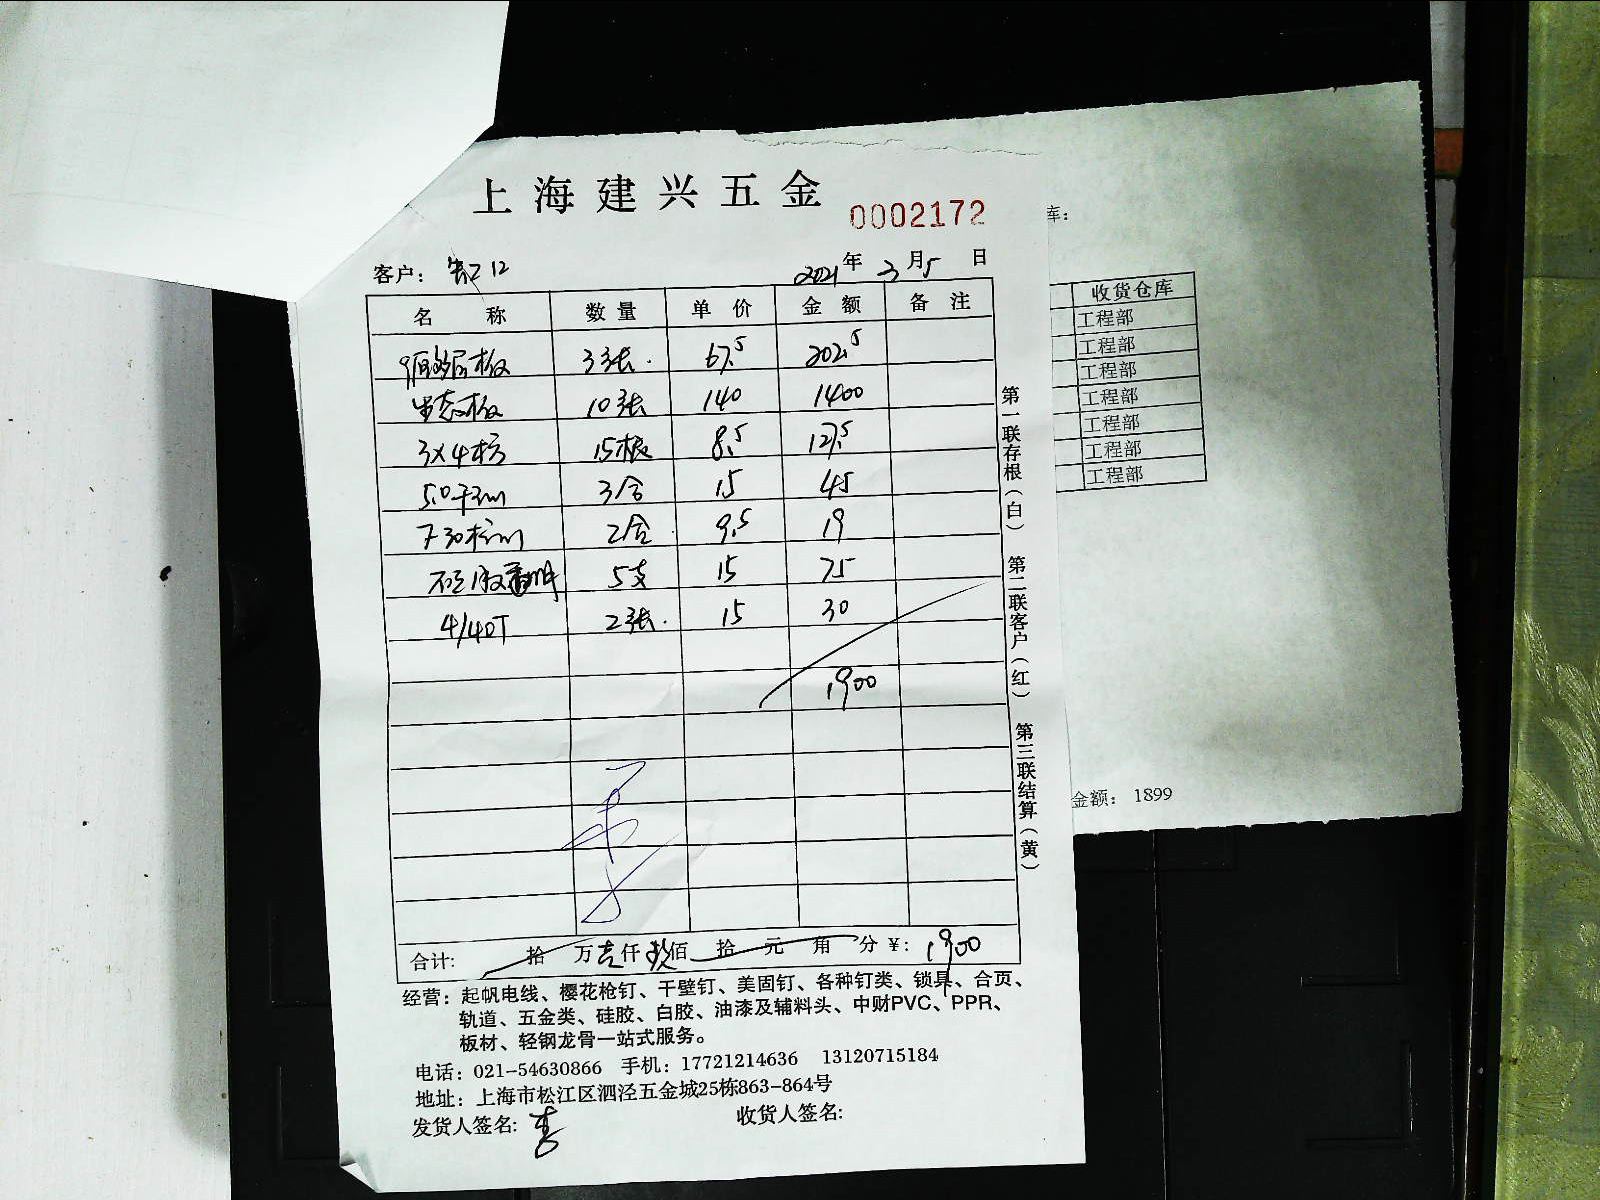 上海建兴五金
0002172
客户： 12
2021年 3月5日
名 称 数量 单价 金额 备注
板 3张. 67.5 202.5
生态板 10张 140 1400
3×4 15根 8.5 127.5
50干 3合 15 45
T-30 2合 9.5 19
5支 15 75
4/40T 2张. 15 30
1900
合计: 拾 万壹仟玖佰 拾 元 角 分 ¥: 1900
经营：起帆电线、樱花枪钉、干壁钉、美固钉、各种钉类、锁具、合页、
轨道、五金类、硅胶、白胶、油漆及辅料头、中财PVC、PPR、
板材、轻钢龙骨一站式服务。
电话：021-54630866 手机：17721214636 13120715184
地址：上海市松江区泗泾五金城25栋863-864号
发货人签名: 李 收货人签名:
第一联存根(白) 第二联客户(红) 第三联结算(黄)
库：
收货仓库
工程部
工程部
工程部
工程部
工程部
工程部
工程部
金额： 1899